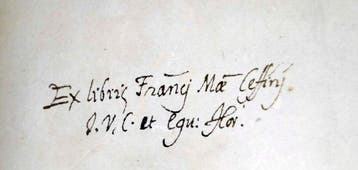 Ex libris Franc̄j Mǣ Ceffinj.
J. V. C. et Equ: flor.